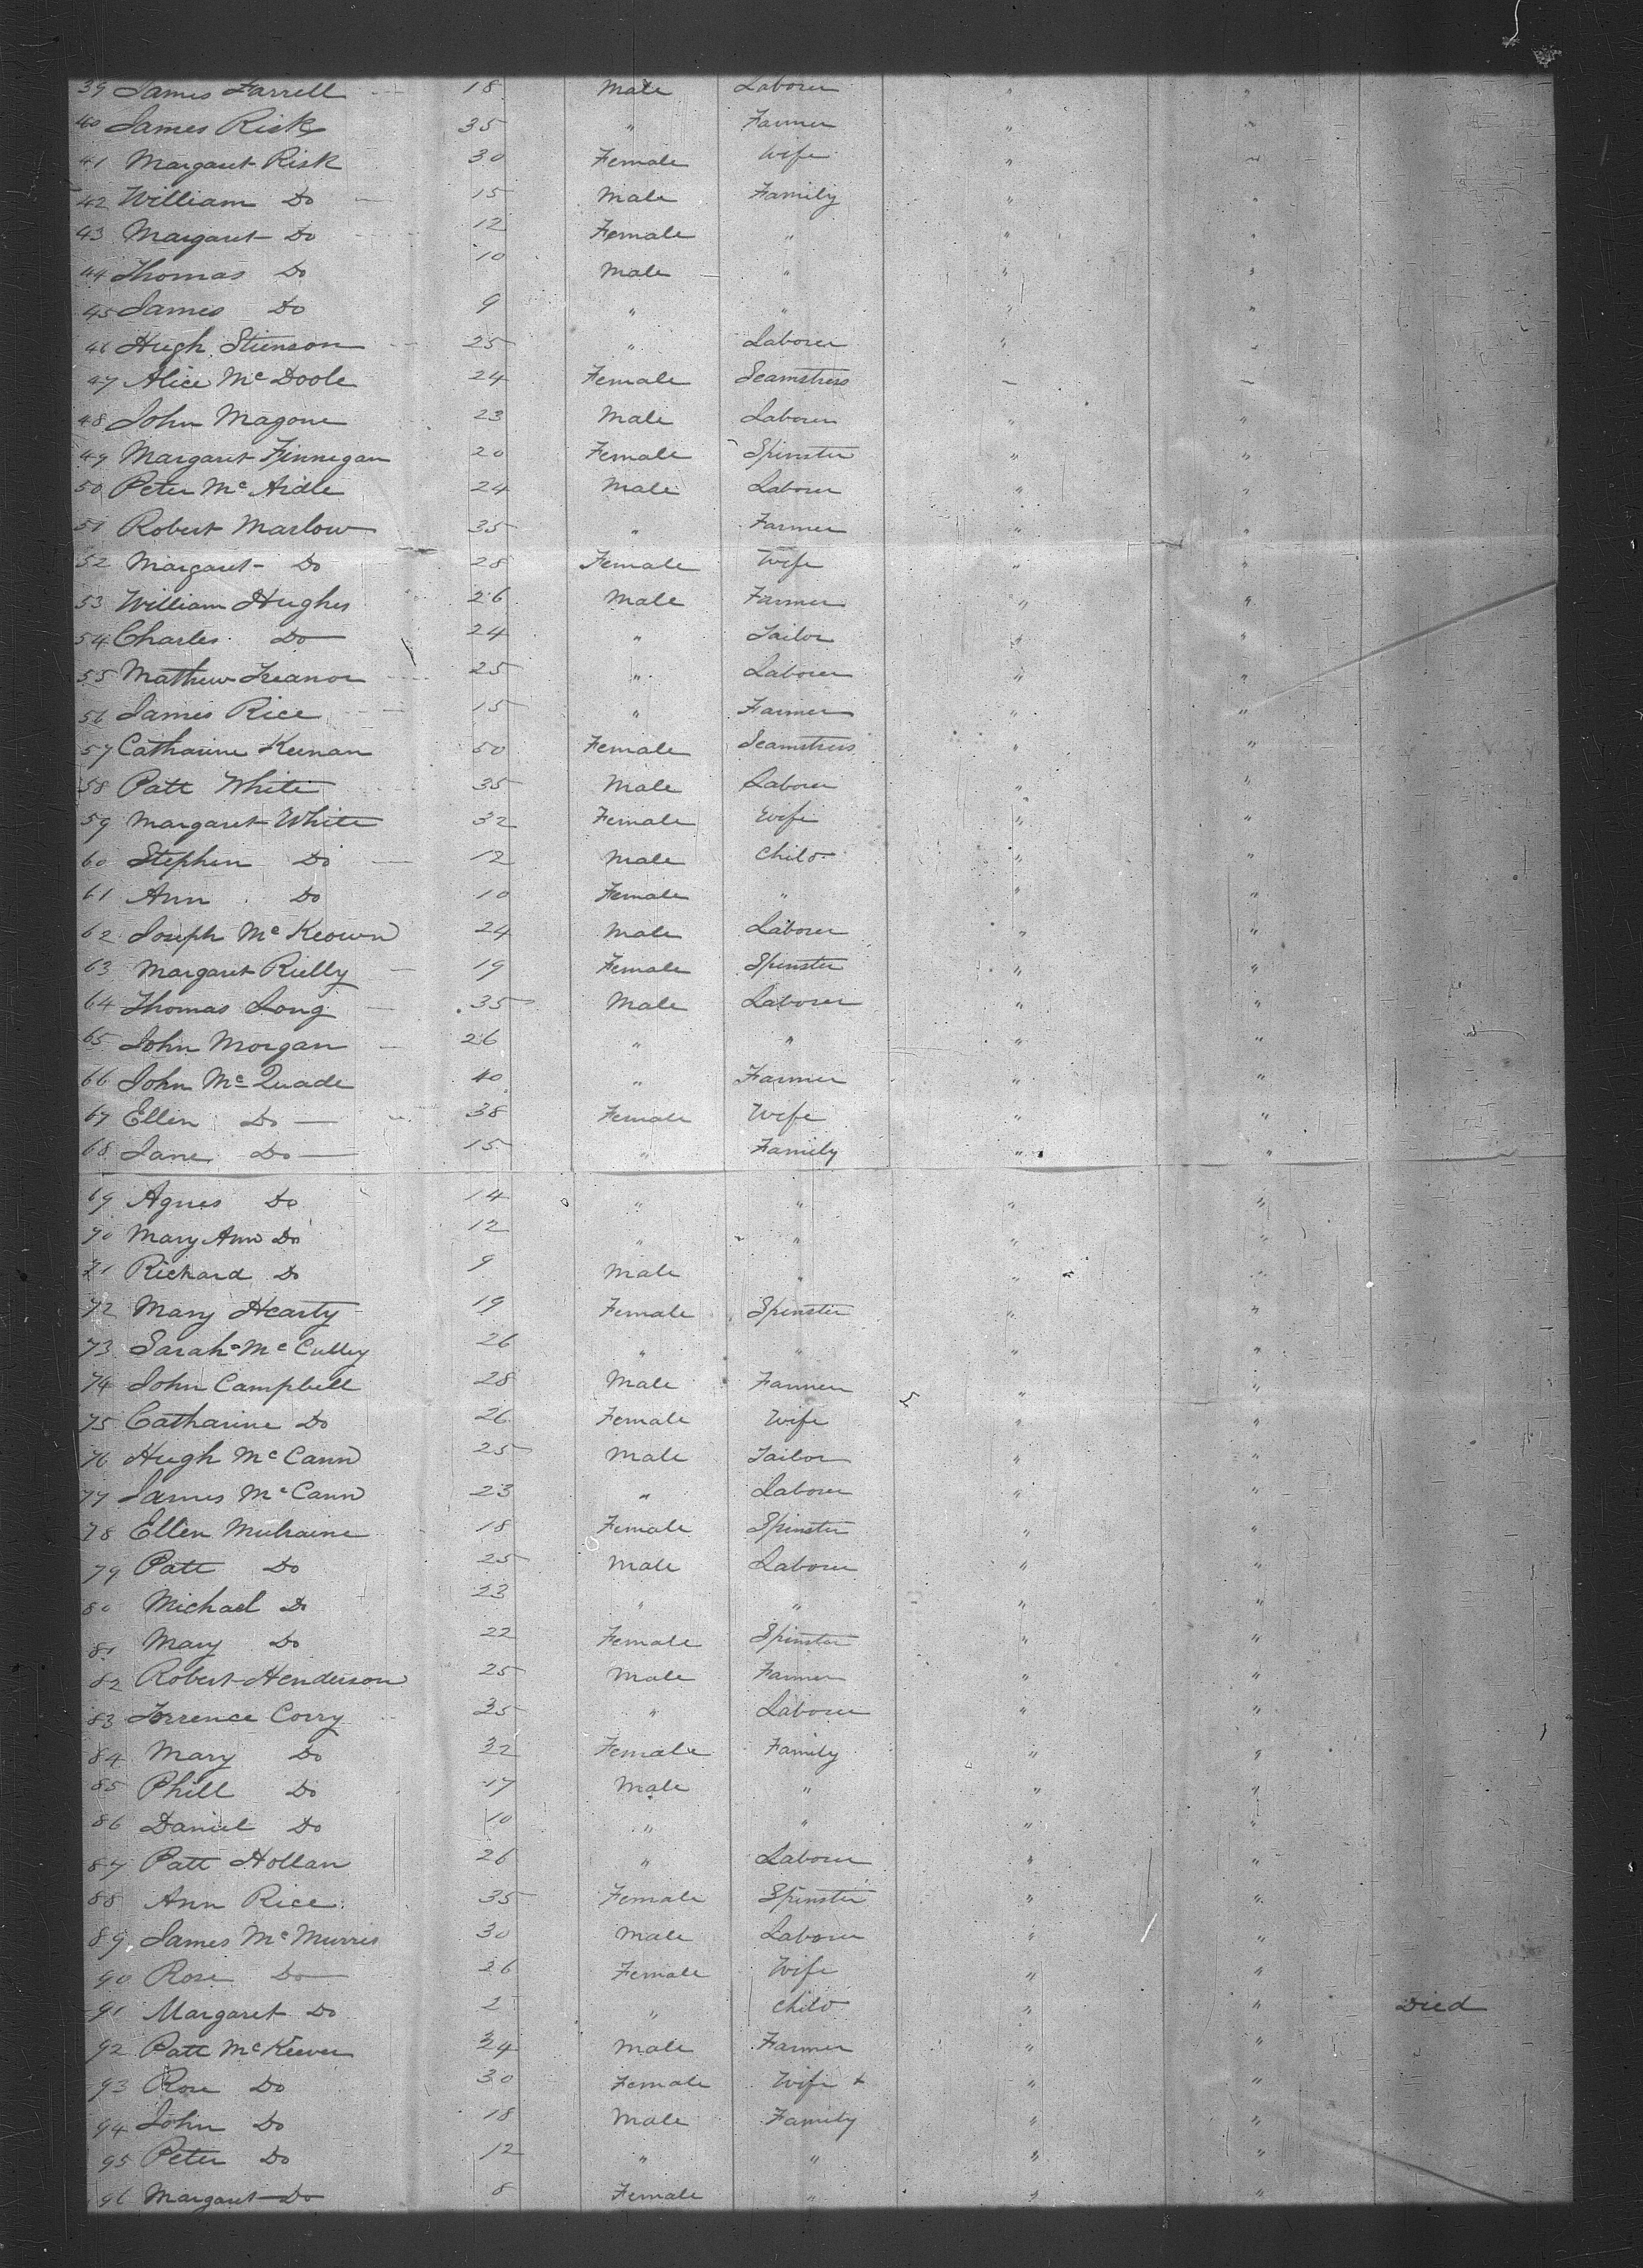 39 James Farrell 18 Male Laborer " "
40 James Risk 35 " Farmer " "
41 Margaret Risk 30 Female Wife " "
42 William Do 15 Male Family " "
43 Margaret Do 12 Female " " "
44 Thomas Do 10 Male " " "
45 James Do 9 " " " "
46 Hugh Stienson 25 " Laborer " "
47 Alice McDoole 24 Female Seamstress " "
48 John Magone 23 Male Laborer " "
49 Margaret Finnegan 20 Female Spinster " "
50 Peter McArdle 24 Male Laborer " "
51 Robert Marlow 35 " Farmer " "
52 Margaret Do 28 Female Wife " "
53 William Hughes 26 Male Farmer " "
54 Charles Do 24 " Tailor " "
55 Mathew Treanor 25 " Laborer " "
56 James Rice 15 " Farmer " "
57 Catharine Keenan 50 Female Seamstress " "
58 Patt White 35 Male Laborer " "
59 Margaret White 32 Female Wife " "
60 Stephen Do 12 Male Child " "
61 Ann Do 10 Female " " "
62 Joseph McKeown 24 Male Laborer " "
63 Margaret Rielly 19 Female Spinster " "
64 Thomas Long 35 Male Laborer " "
65 John Morgan 26 " " " "
66 John McQuade 40 " Farmer " "
67 Ellen Do 38 Female Wife " "
68 Jane Do 15 " Family " "
69 Agnes Do 14 " " " "
70 Mary Ann Do 12 " " " "
71 Richard Do 9 Male " " "
72 Mary Hearty 19 Female Spinster " "
73 Sarah McCulley 26 " " " "
74 John Campbell 28 Male Farmer " "
75 Catharine Do 26 Female Wife " "
76 Hugh McCann 25 Male Tailor " "
77 James McCann 23 " Laborer " "
78 Ellen Mulraine 18 Female Spinster " "
79 Patt Do 25 Male Laborer " "
80 Michael Do 23 " " " "
81 Mary Do 22 Female Spinster " "
82 Robert Henderson 25 Male Farmer " "
83 Terrence Corry 35 " Laborer " "
84 Mary Do 32 Female Family " "
85 Phill Do 17 Male " " "
86 Daniel Do 10 " " " "
87 Patt Hollan 26 " Laborer " "
88 Ann Rice 35 Female Spinster " "
89 James McMurris 30 Male Laborer " "
90 Rose Do 26 Female Wife " "
91 Margaret Do 2 " Child " " Died
92 Patt McKeever 34 Male Farmer " "
93 Rose Do 30 Female Wife + " "
94 John Do 18 Male Family " "
95 Peter Do 12 " " " "
96 Margaret Do 8 Female " " "